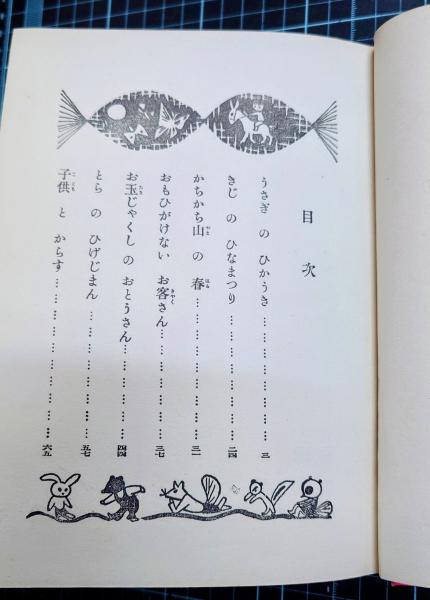 目次
うさぎ の ひかうき……………………三
きじ の ひなまつり……………………二四
かちかち山 の 春……………………三一
おもひがけない お客さん……………………三七
お玉じゃくし の おとうさん……………………四四
とら の ひげじまん……………………五七
子供 と からす……………………六五